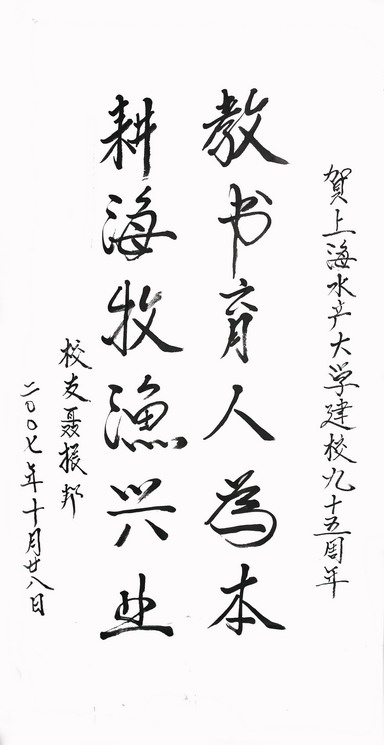 賀上海水产大学建校九十五周年
教书育人為本
耕海牧漁兴业
校友聂振邦
二〇〇七年十月廿八日